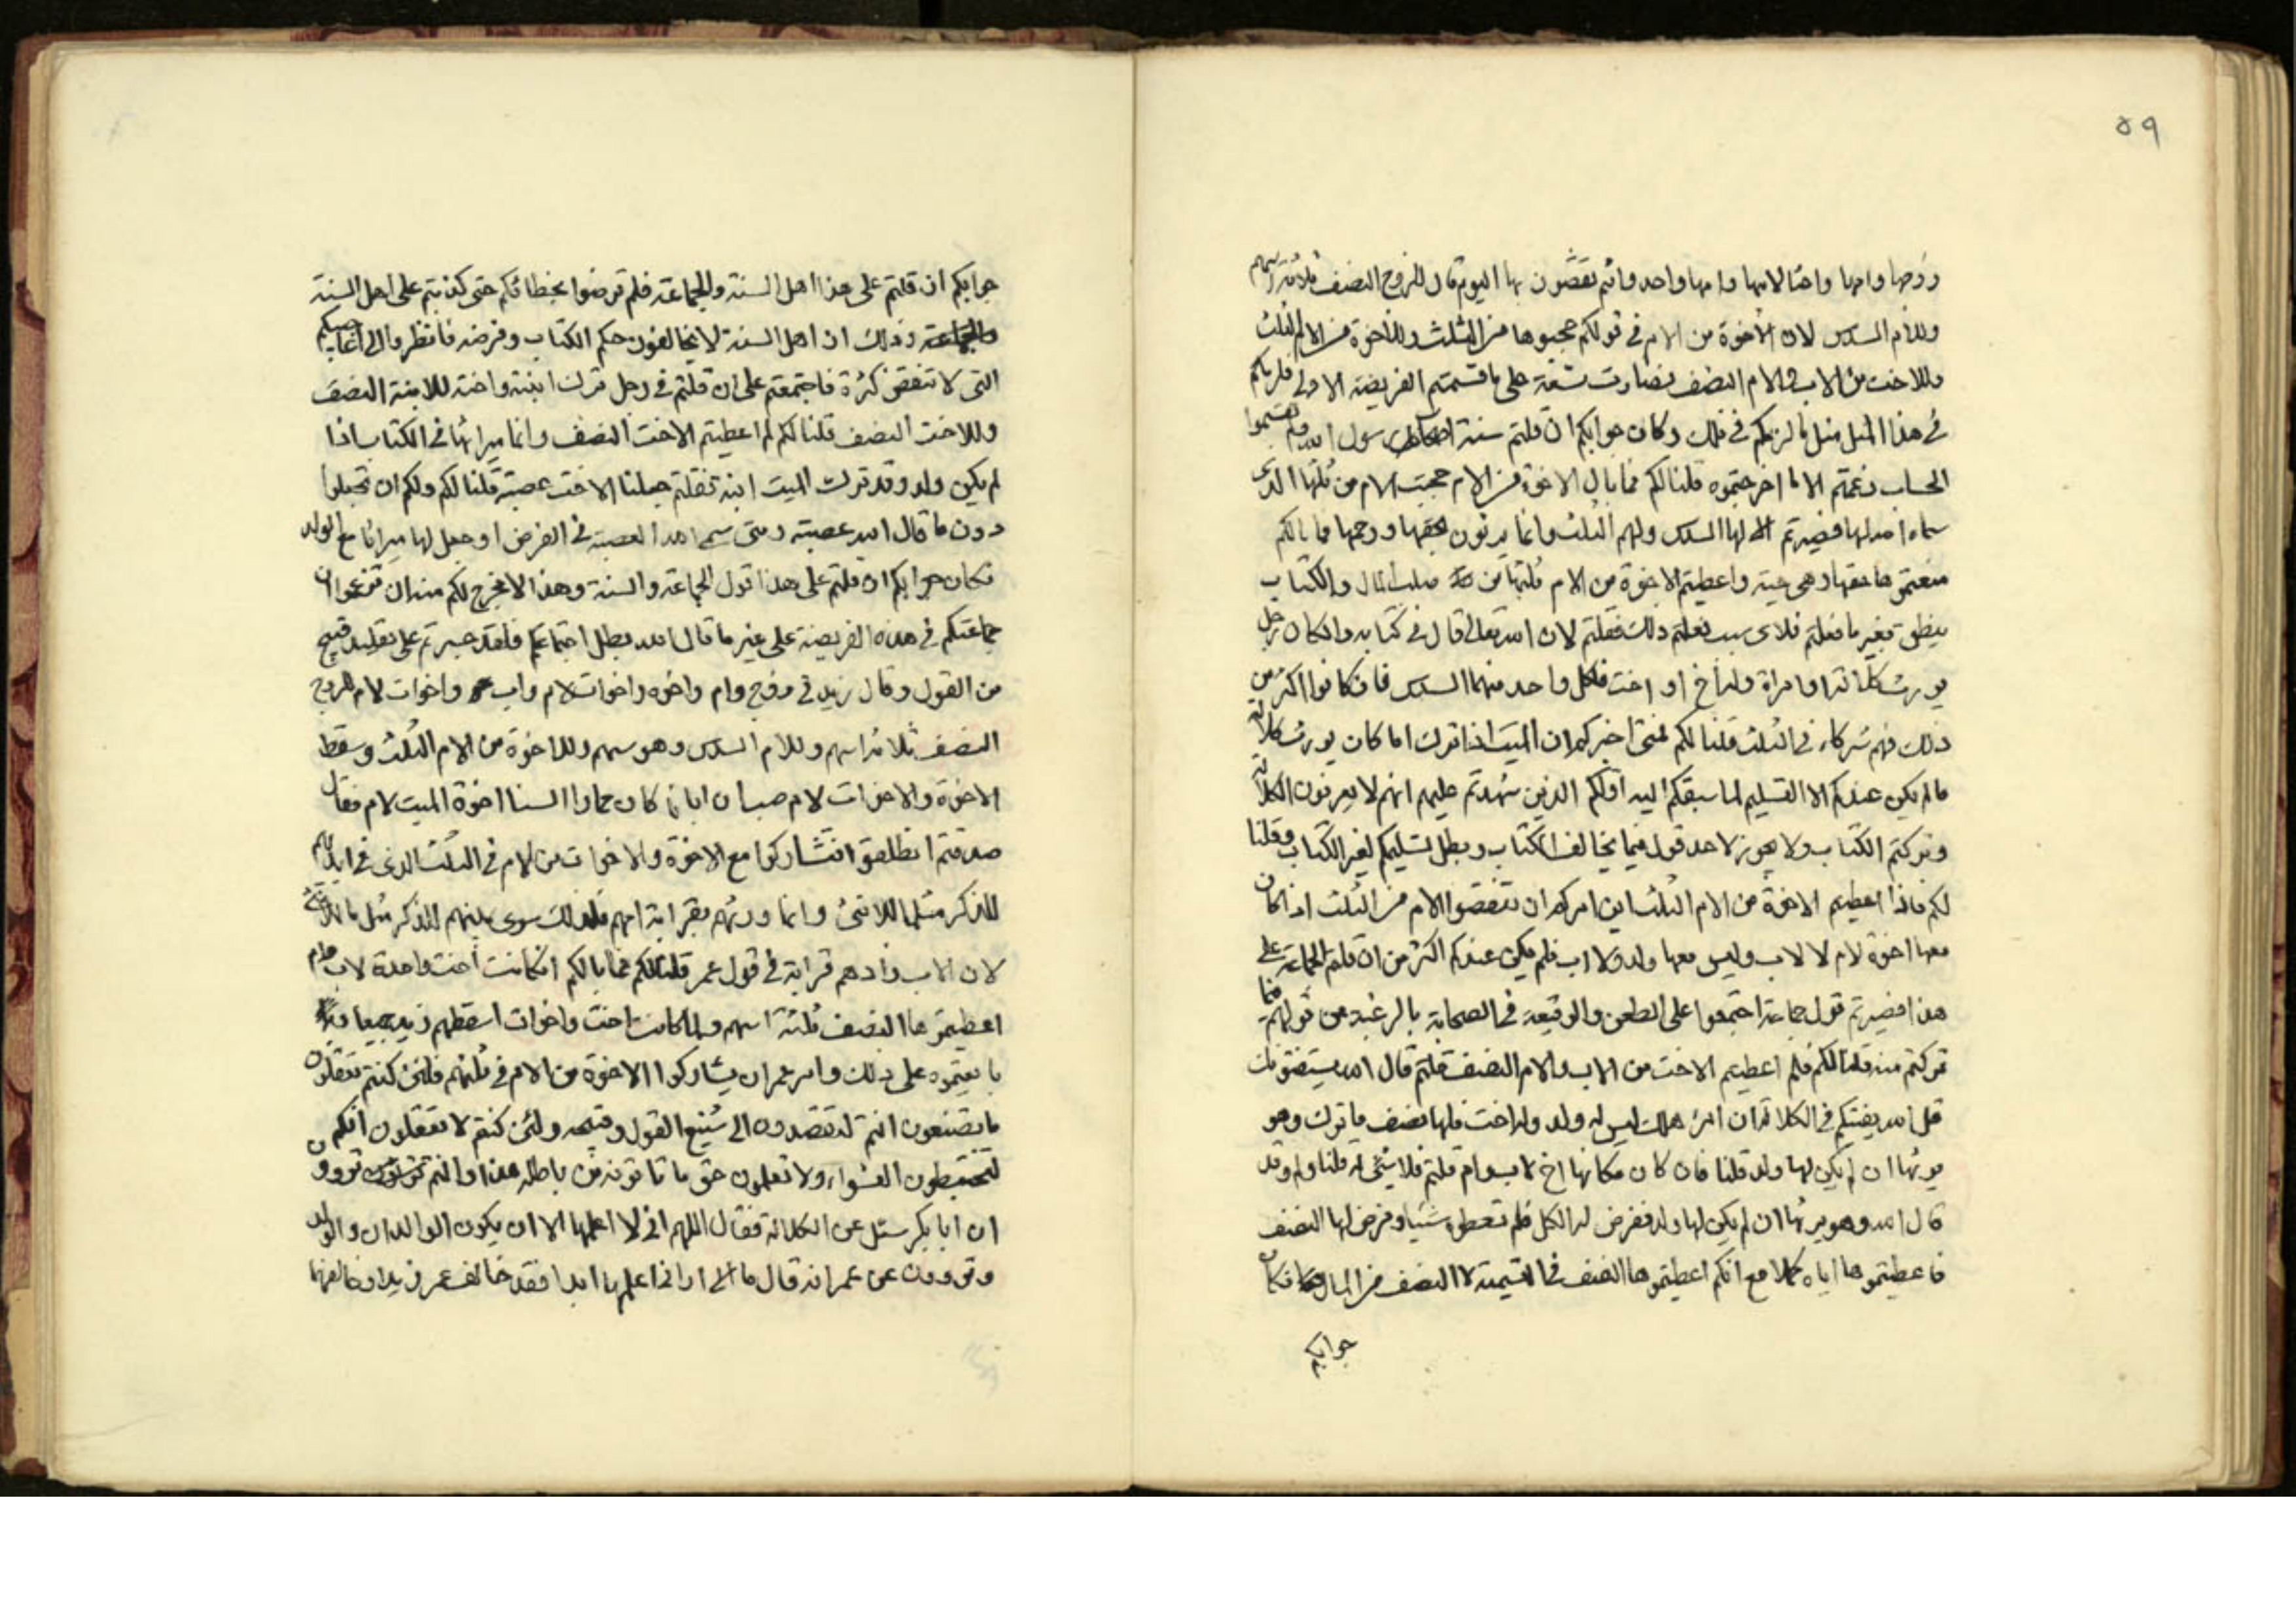 ٥٩
وزوجها وامها واختا لامها وامها واحد وانتم تقصون بها اليوم قال للزوج النصف ثلاثة اسهم
وللام السدس لان الاخوة من الام في قولكم حجبوها من الثلث وللاخوة من الام الثلث
وللاخت من الاب والام النصف فصارت تسعة على ما قسمتم الفريضة الاولى فلزمكم
في هذا المثل مثل ما لزمكم في ذلك وكان جوابكم ان قلتم سنة اصحاب رسول الله ولم تقسموا
الحساب زعمتم الا ما اخرجتموه قلنا لكم فما بال الاخوة من الام حجبت الام من ثلثها الذي
سماه الله لها فصيرتم لها السدس ولهم الثلث وانما يرثون بحقها ورحمها فما بالكم
منعتموها حقها وهي حية واعطيتم الاخوة من الام ثلثها من ثلث المال والكتاب
ينطق بغير ما فعلتم فلاي سبب فعلتم ذلك فقلتم لان الله تعالى قال في كتابه وان كان رجل
يورث كلالة او امراة وله اخ او اخت فلكل واحد منهما السدس فان كانوا اكثر من
ذلك فهم شركاء في الثلث قلنا لكم فمتى اخبركم ان الميت اذا ترك اما كان يورث كلالة
فلم يكن عندكم الا التسليم لما سبقكم اليه اولكم الذين شهدتم عليهم انهم لا يعرفون الكلالة
وتركتم الكتاب ولا يجوز لاحد قول فيما يخالف الكتاب وبطل تسليمكم لغير الكتاب وقلنا
لكم فاذا اعطيتم الاخوة من الام الثلث اين امركم ان تنقصوا الام من الثلث اذا كان
معها اخوة لام لا لاب وليس معها ولد ولا اب فلم يكن عندكم اكثر من ان قلتم الجماعة على
هذا فصيرتم قول جماعة اجتمعوا على الطعن والوقيعة في الصحابة بالرغبة عن قولهم فيما
تركتم منه قلنا لكم فلم اعطيتم الاخت من الاب والام النصف قلتم قال الله يستفتونك
قل الله يفتيكم في الكلالة ان امرؤ هلك ليس له ولد وله اخت فلها نصف ما ترك وهو
يرثها ان لم يكن لها ولد قلنا فان كان مكانها اخ لاب وام قلتم فلا شئ له قلنا ولم وقد
قال الله وهو يرثها ان لم يكن لها ولد ففرض له الكل فلم تعطوه شيئا وفرض لها النصف
فاعطيتموها اياه كملا مع انكم اعطيتموها النصف في التسمية لا النصف من المال فكان
جوابكم
جوابكم ان قلتم على هذا اهل السنة والجماعة فلم ترضوا بخطائكم حتى كذبتم على اهل السنة
والجماعة وذلك ان اهل السنة لا يخالفون حكم الكتاب وفرضه فانظروا الى اعاجيبكم
التي لا تنقضي كثرة فاجتمعتم على ان قلتم في رجل ترك ابنته واخته للابنة النصف
وللاخت النصف قلنا لكم لم اعطيتم الاخت النصف وانما ميراثها في الكتاب اذا
لم يكن ولد وقد ترك الميت ابنة فقلتم جعلنا الاخت عصبة قلنا لكم ولكم ان تجعلوا
دون ما قال الله عصبة ومتى سمى الله العصبة في الفرض او جعل لها ميراثا مع الولد
فكان جوابكم ان قلتم على هذا قول الجماعة والسنة وهذا لا مخرج لكم منه ان تزعموا ان
جماعتكم في هذه الفريضة على غير ما قال الله بطل اجتماعكم فلقد جبرتم على تقليد قبيح
من القول وقال زيد في زوج وام واخوه واخوات لام واب واخوات لام للزوج
النصف ثلاثة اسهم وللام السدس وهو سهم وللاخوة من الام الثلث وسقط
الاخوة والاخوات لام هب ان ابانا كان حمارا السنا اخوة الميت لام فقال
صدقتم انطلقوا فتشاركوا مع الاخوة والاخوات من الام في الثلث الذي في ايديهم
للذكر مثل ما للانثى وانما ورثهم بقرابة امهم فلذلك سوى بينهم للذكر مثل ما للانثى
لان الاب زادهم قرابة في قول عمر قلنا لكم فما بالكم ان كانت اخت واحدة لاب وام
اعطيتموها النصف ثلثة اسهم ولما كانت اخت واخوات اسقطهم زيد جميعا
بايعتموه على ذلك وامر عمر ان يشاركوا الاخوة من الام في ثلثهم فلئن كنتم تعقلون
ما تصنعون انتم لتقصدون الى شنيع القول وقبيحه ولئن كنتم لا تعقلون انكم
لتخبطون العشواء ولا تعلمون حق ما تاتونه من باطله هذا وانتم تروون
ان ابا بكر سئل عن الكلالة فقال اللهم اني لا اعلمها الا ان يكون الوالدان والولد
وتروون عن عمر انه قال ما الى اراني اعلم بها ابدا فقد خالف عمر زيدا وخالفهما